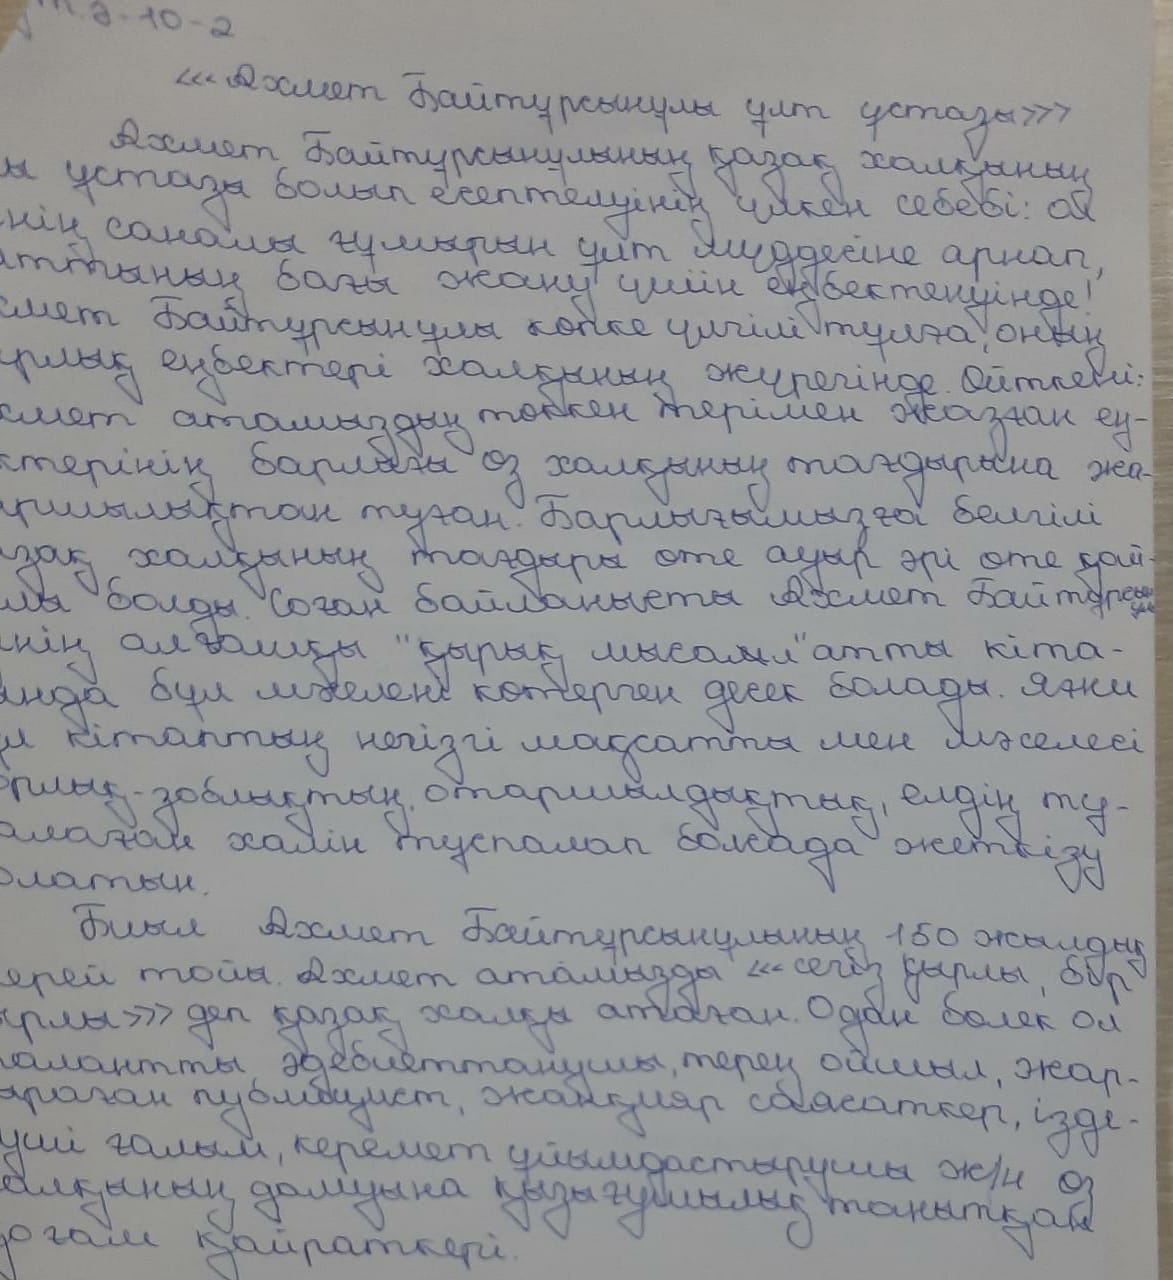 т.ә-10-2
<<Ахмет Байтұрсынұлы ұлт ұстазы>>
Ахмет Байтұрсынұлының қазақ халқының
ы ұстазы болып есептелуінің үлкен себебі: ол
нің саналы ғұмырын ұлт мүддесіне арнап,
аттының бағы жану үшін еңбектенуінде!
мет Байтұрсынұлы көпке үлгілі тұлға, оның
рлық еңбектері халқының жүрегінде. Өйткені:
мет атамыздың төккен терімен жазған ең-
ктерінің барлығы өз халқының тағдырына жа-
ршылықтан туған. Барлығымызға белгілі
зақ халқының тағдыры өте ауыр әрі өте қай-
лы болды. Соған байланысты Ахмет Байтұрсынұ
нің алғашқы "қырық мысал" атты кіта-
ында бұл мәселені көтерген десек болады. Яғни
л кітаптың негізгі мақсатты мен мәселесі
рлық-зоблықтың, отаршылдықтың, елдің ту-
алаған халін тұспалап болсада жеткізу
олатын.
Биыл Ахмет Байтұрсынұлының 150 жылдық
ерей тойы. Ахмет атамызды <<сегіз қырлы, бір
ырлы>> деп қазақ халқы атаған. Одан бөлек ол
алантты әдебиеттанушы, терең ойшыл, жар-
ыраған публицист, жанқияр саясаткер, ізде-
уші ғалым, керемет ұйымдастырушы ж/н өз
алқының дамуына қызығушылық танытқан
оғам қайраткері.